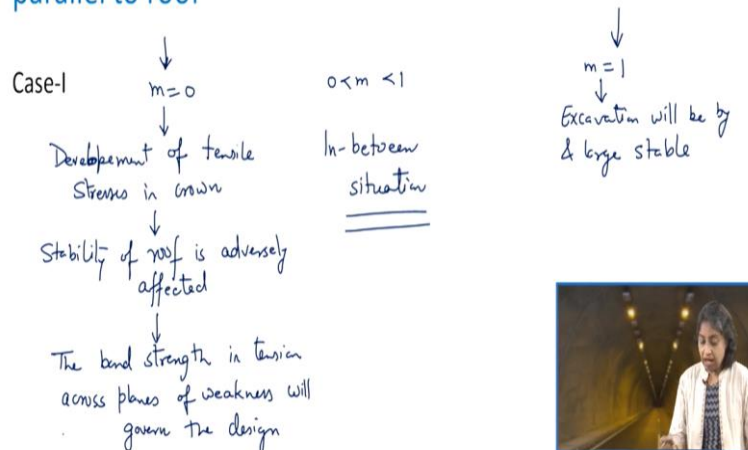 parallel to roof
Case-I
m=0
Developement of tensile
Stresses in crown
Stability of roof is adversely
affected
The bond strength in tension
across planes of weakness will
govern the design
0<m<1
In-between
situation
m=1
Excavation will be by
& large stable